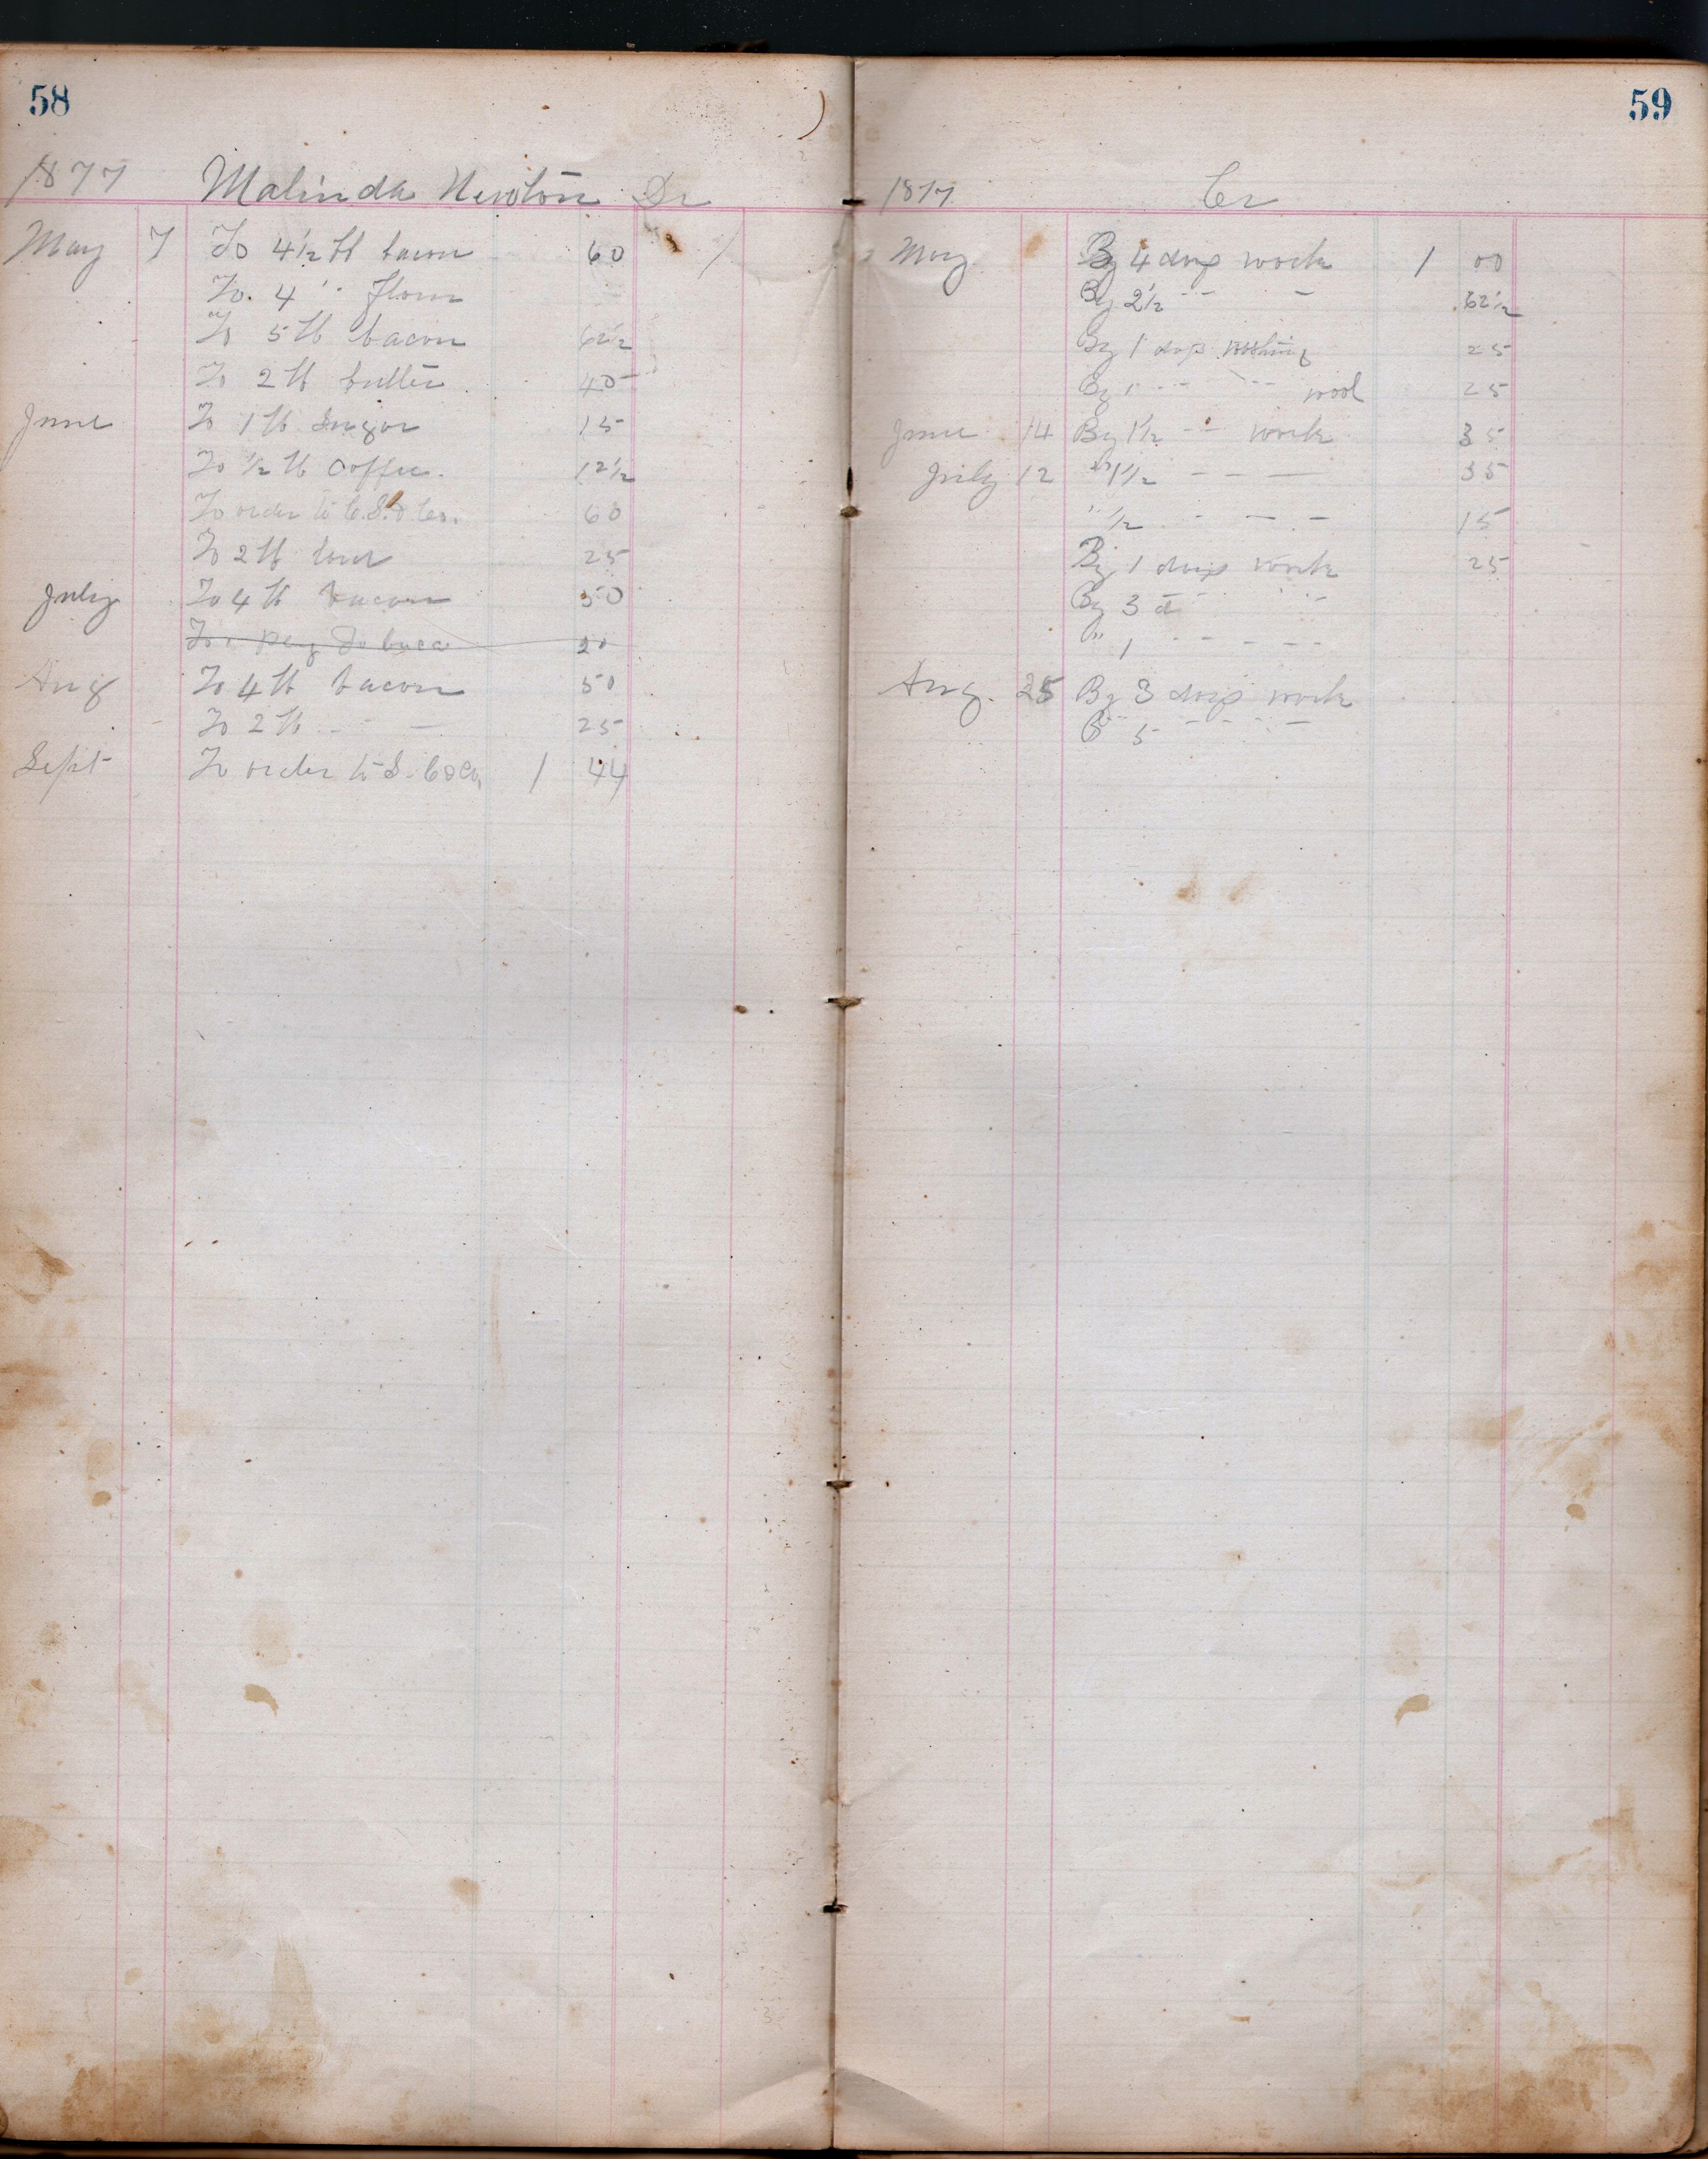 58
1877 Malinda Newton Dr
May 7 To 4½ lb bacon 60
To 4 " flour
To 5 lb bacon 62½
To 2 lb butter 40
June To 1 lb Sugar 15
To ½ lb Coffee 12½
To order to C. S. & Co. 60
To 2 lb 25
July To 4 lb bacon 50
To 1 plug Tobacco 20
Aug To 4 lb bacon 50
To 2 lb " " 25
Sept To order to S. Co & Co, 1 44
59
1877 Cr
May By 4 days work 1 00
By 2½ " " 62½
By 1 days washing 25
By 1 " " wool 25
June 14 By 1½ " work 35
July 12 " 1½ " " 35
" ½ " " 15
By 1 days work 25
By 3 d " "
" 1 " " "
Aug. 25 By 3 days work
" 5 " " "